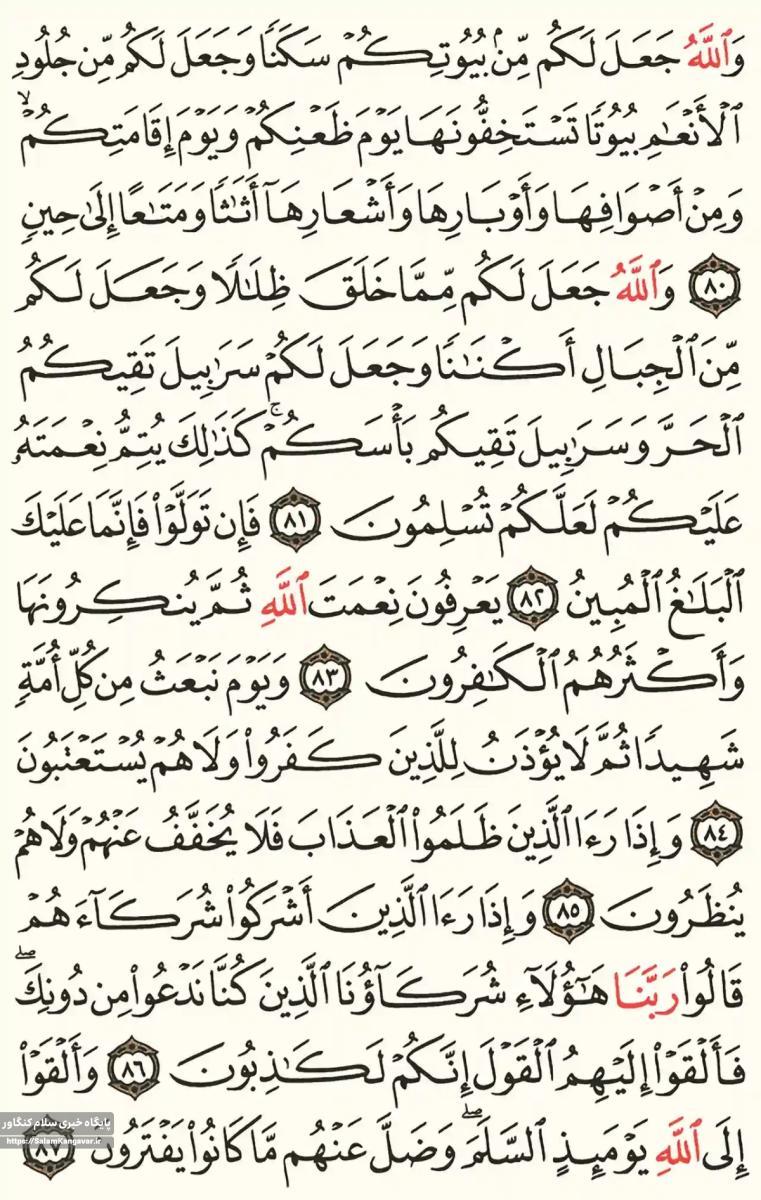 وَٱللَّهُ جَعَلَ لَكُم مِّنۢ بُيُوتِكُمْ سَكَنًا وَجَعَلَ لَكُم مِّن جُلُودِ
ٱلْأَنْعَٰمِ بُيُوتًا تَسْتَخِفُّونَهَا يَوْمَ ظَعْنِكُمْ وَيَوْمَ إِقَامَتِكُمْ ۙ
وَمِنْ أَصْوَافِهَا وَأَوْبَارِهَا وَأَشْعَارِهَآ أَثَٰثًا وَمَتَٰعًا إِلَىٰ حِينٍ
٨٠ وَٱللَّهُ جَعَلَ لَكُم مِّمَّا خَلَقَ ظِلَٰلًا وَجَعَلَ لَكُم
مِّنَ ٱلْجِبَالِ أَكْنَٰنًا وَجَعَلَ لَكُمْ سَرَٰبِيلَ تَقِيكُمُ
ٱلْحَرَّ وَسَرَٰبِيلَ تَقِيكُم بَأْسَكُمْ ۚ كَذَٰلِكَ يُتِمُّ نِعْمَتَهُۥ
عَلَيْكُمْ لَعَلَّكُمْ تُسْلِمُونَ ٨١ فَإِن تَوَلَّوْا۟ فَإِنَّمَا عَلَيْكَ
ٱلْبَلَٰغُ ٱلْمُبِينُ ٨٢ يَعْرِفُونَ نِعْمَتَ ٱللَّهِ ثُمَّ يُنكِرُونَهَا
وَأَكْثَرُهُمُ ٱلْكَٰفِرُونَ ٨٣ وَيَوْمَ نَبْعَثُ مِن كُلِّ أُمَّةٍ
شَهِيدًا ثُمَّ لَا يُؤْذَنُ لِلَّذِينَ كَفَرُوا۟ وَلَا هُمْ يُسْتَعْتَبُونَ
٨٤ وَإِذَا رَءَا ٱلَّذِينَ ظَلَمُوا۟ ٱلْعَذَابَ فَلَا يُخَفَّفُ عَنْهُمْ وَلَا هُمْ
يُنظَرُونَ ٨٥ وَإِذَا رَءَا ٱلَّذِينَ أَشْرَكُوا۟ شُرَكَآءَهُمْ
قَالُوا۟ رَبَّنَا هَٰٓؤُلَآءِ شُرَكَآؤُنَا ٱلَّذِينَ كُنَّا نَدْعُوا۟ مِن دُونِكَ ۖ
فَأَلْقَوْا۟ إِلَيْهِمُ ٱلْقَوْلَ إِنَّكُمْ لَكَٰذِبُونَ ٨٦ وَأَلْقَوْا۟
إِلَى ٱللَّهِ يَوْمَئِذٍ ٱلسَّلَمَ ۖ وَضَلَّ عَنْهُم مَّا كَانُوا۟ يَفْتَرُونَ ٨٧
پایگاه خبری سلام کنگاور
https://SalamKangavar.ir